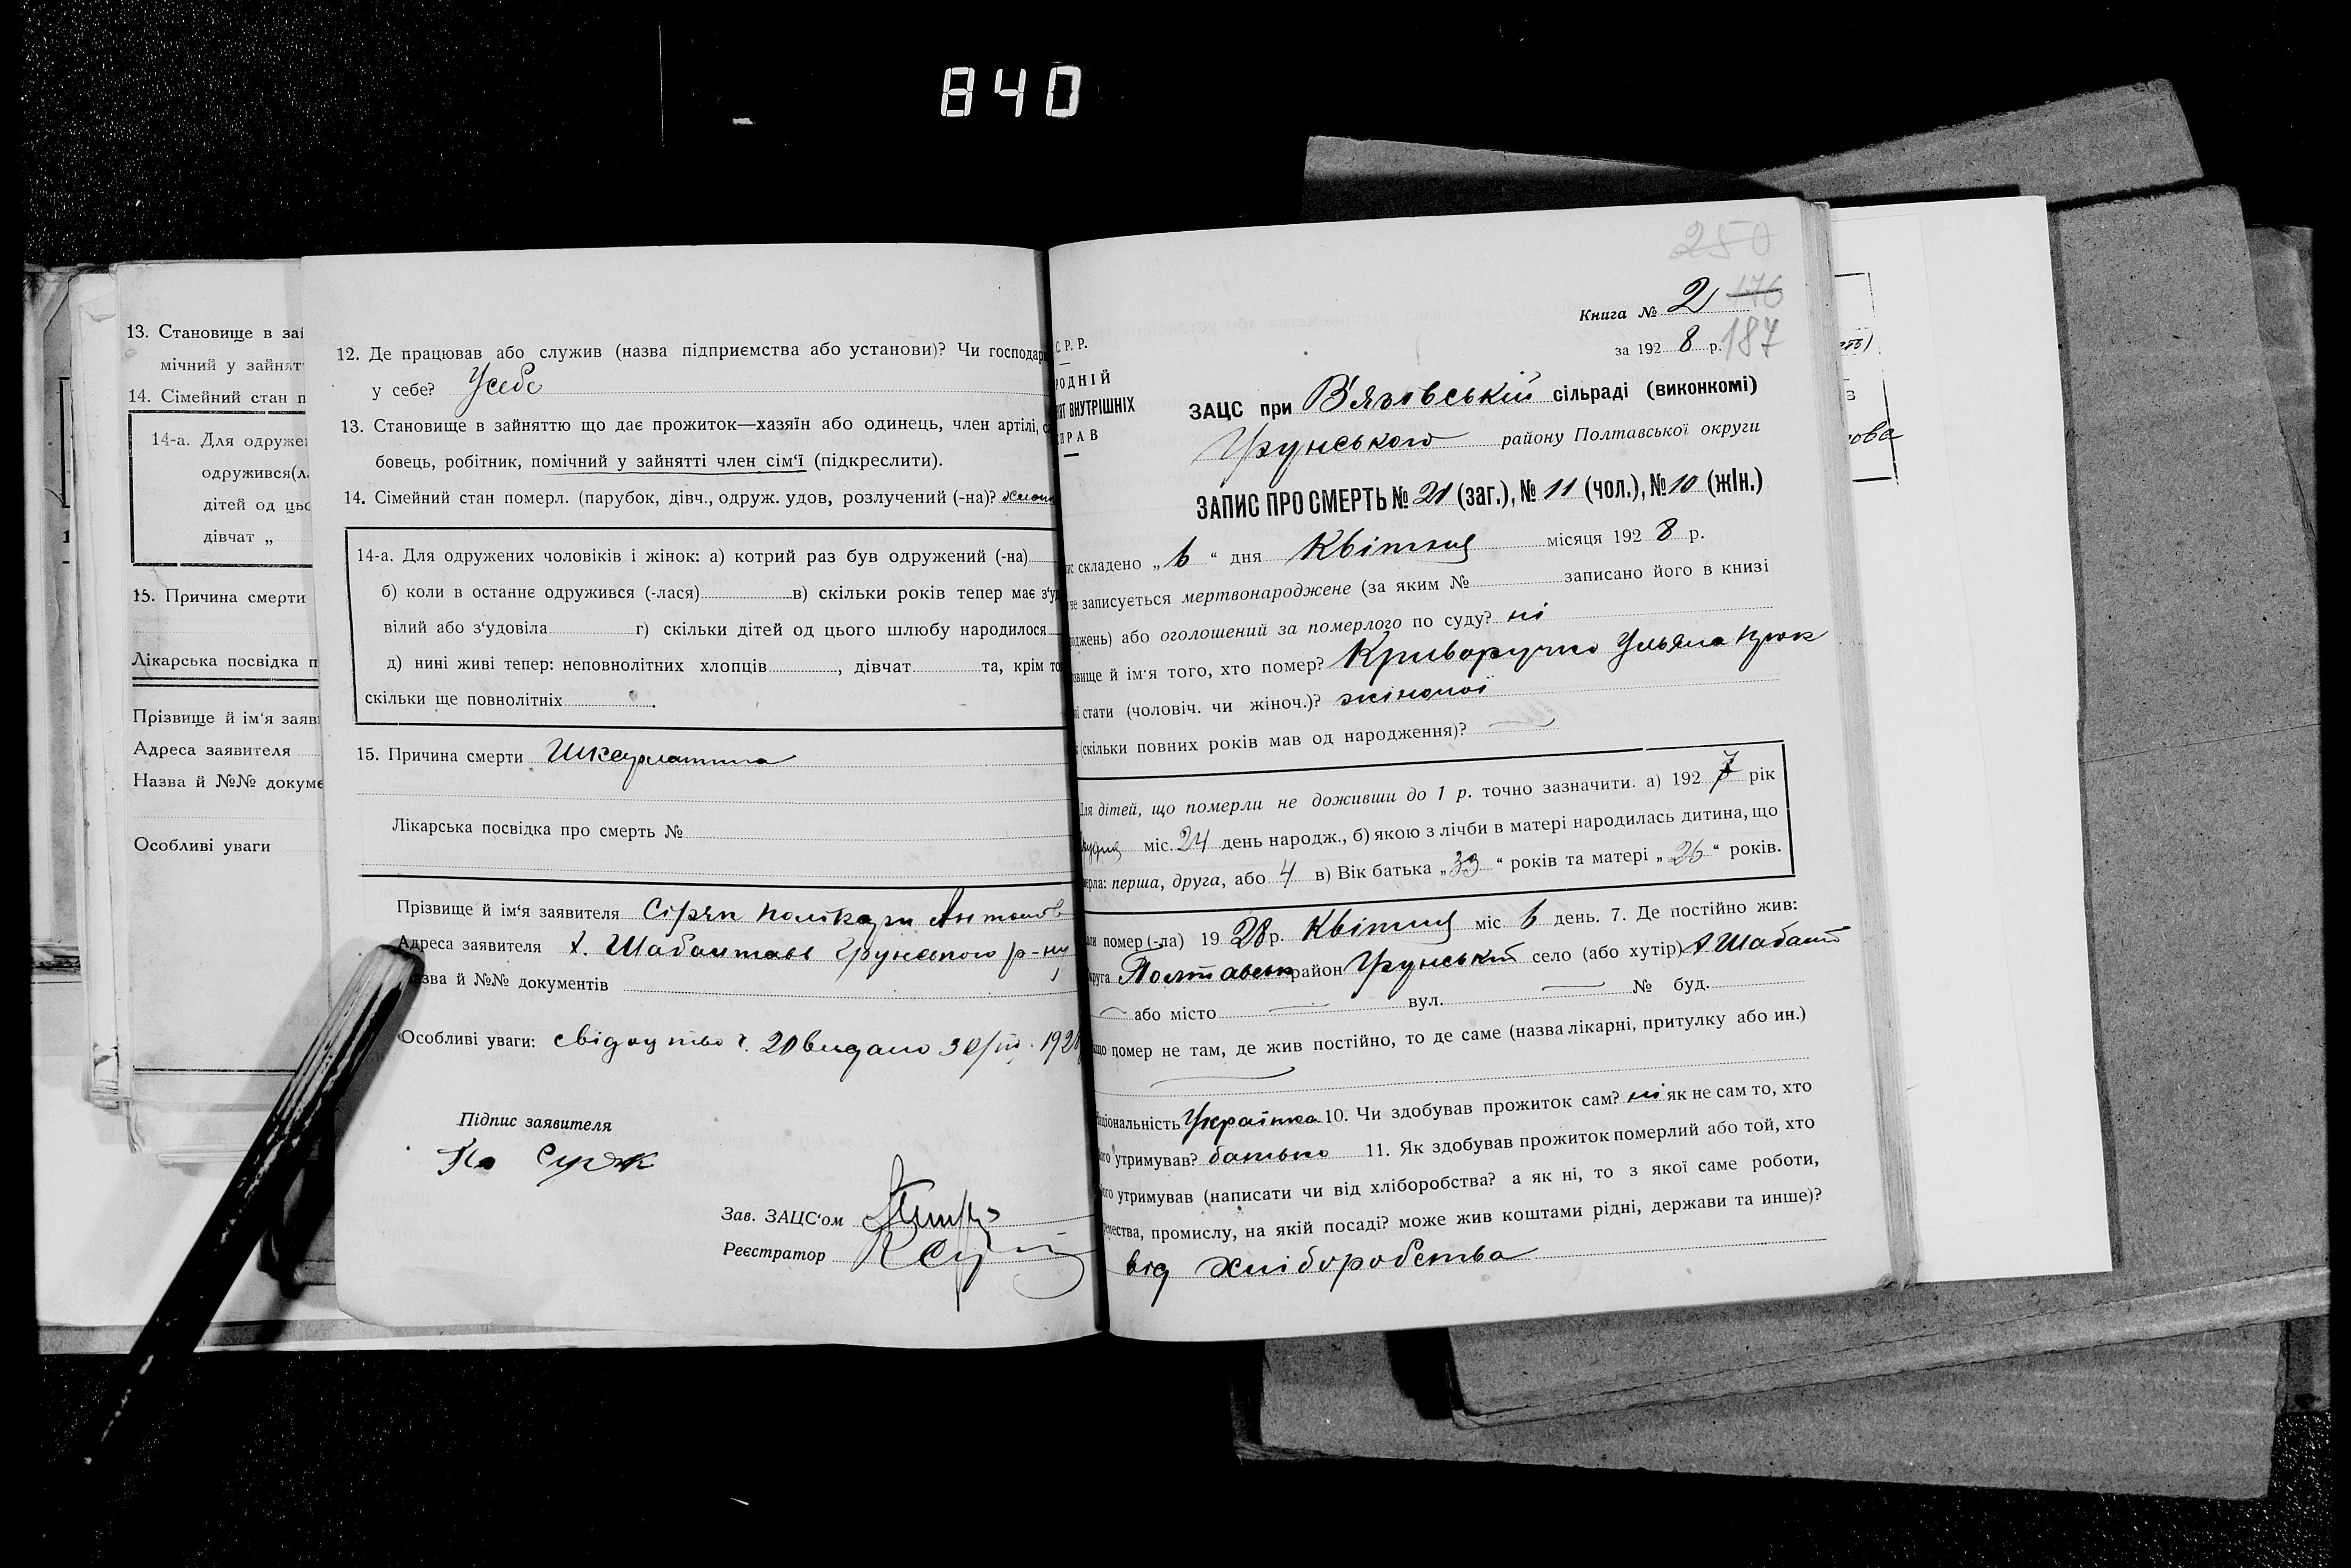 840
13. Становище в зай
мічний у зайнят
14. Сімейний стан п
14-а. Для одружен
одружився(л
дітей од цьо
дівчат „
15. Причина смерти
Лікарська посвідка п
Прізвище й ім'я заяв
Адреса заявителя
Назва й №№ докуме
Особливі уваги
12. Де працював або служив (назва підприємства або установи)? Чи господар
у себе? Усебе
13. Становище в зайняттю що дає прожиток—хазяїн або одинець, член артілі, с
бовець, робітник, помічний у зайнятті член сім'ї (підкреслити).
14. Сімейний стан померл. (парубок, дівч., одруж. удов, розлучений (-на)?
14-а. Для одружених чоловіків і жінок: а) котрий раз був одружений (-на)
б) коли в останнє одружився (-лася) в) скільки років тепер має з'уд
вілий або з'удовіла г) скільки дітей од цього шлюбу народилося
д) нині живі тепер: неповнолітних хлопців , дівчат та, крім то
скільки ще повнолітніх .
15. Причина смерти Шкарлатина
Лікарська посвідка про смерть №
Прізвище й ім'я заявителя Сіряк Полікарп Антонов
Адреса заявителя х. Шабалтаєв Грунського р-ну
азва й №№ документів
Особливі уваги: свідоцтво ч. 20 видано 30/III 192
Підпис заявителя
Зав. ЗАЦС'ом
Реєстратор
250
Книга № 2 176
за 192 8 р. 187
С. Р. Р.
РОДНІЙ
ЯТ ВНУТРІШНІХ
ПРАВ
ЗАЦС при В'язовській сільраді (виконкомі)
Грунського району Полтавської округи
ЗАПИС ПРО СМЕРТЬ № 21 (заг.), № 11 (чол.), № 10 (жін.)
ис складено „ 6 “ дня Квітня місяця 192 8 р.
не записується мертвонароджене (за яким № записано його в книзі
оджень) або оголошений за померлого по суду? ні
звище й ім'я того, хто помер? Криворучко Ульяна
ї стати (чоловіч. чи жіноч.)? жіночої
(скільки повних років мав од народження)?
Для дітей, що померли не доживши до 1 р. точно зазначити: а) 192 7 рік
міс. 24 день народж., б) якою з лічби в матері народилась дитина, що
ерла: перша, друга, або 4 в) Вік батька „ 33 “ років та матері „ 26 “ років.
ли помер (-ла) 19 28 р. Квітня міс 6 день. 7. Де постійно жив:
круга Полтавськ район Грунський село (або хутір) х Шабалт
або місто вул. № буд.
що помер не там, де жив постійно, то де саме (назва лікарні, притулку або ин.)
аціональність Українка 10. Чи здобував прожиток сам? ні як не сам то, хто
ого утримував? батько 11. Як здобував прожиток померлий або той, хто
ого утримував (написати чи від хліборобства? а як ні, то з якої саме роботи,
емества, промислу, на якій посаді? може жив коштами рідні, держави та инше)?
від хліборобства